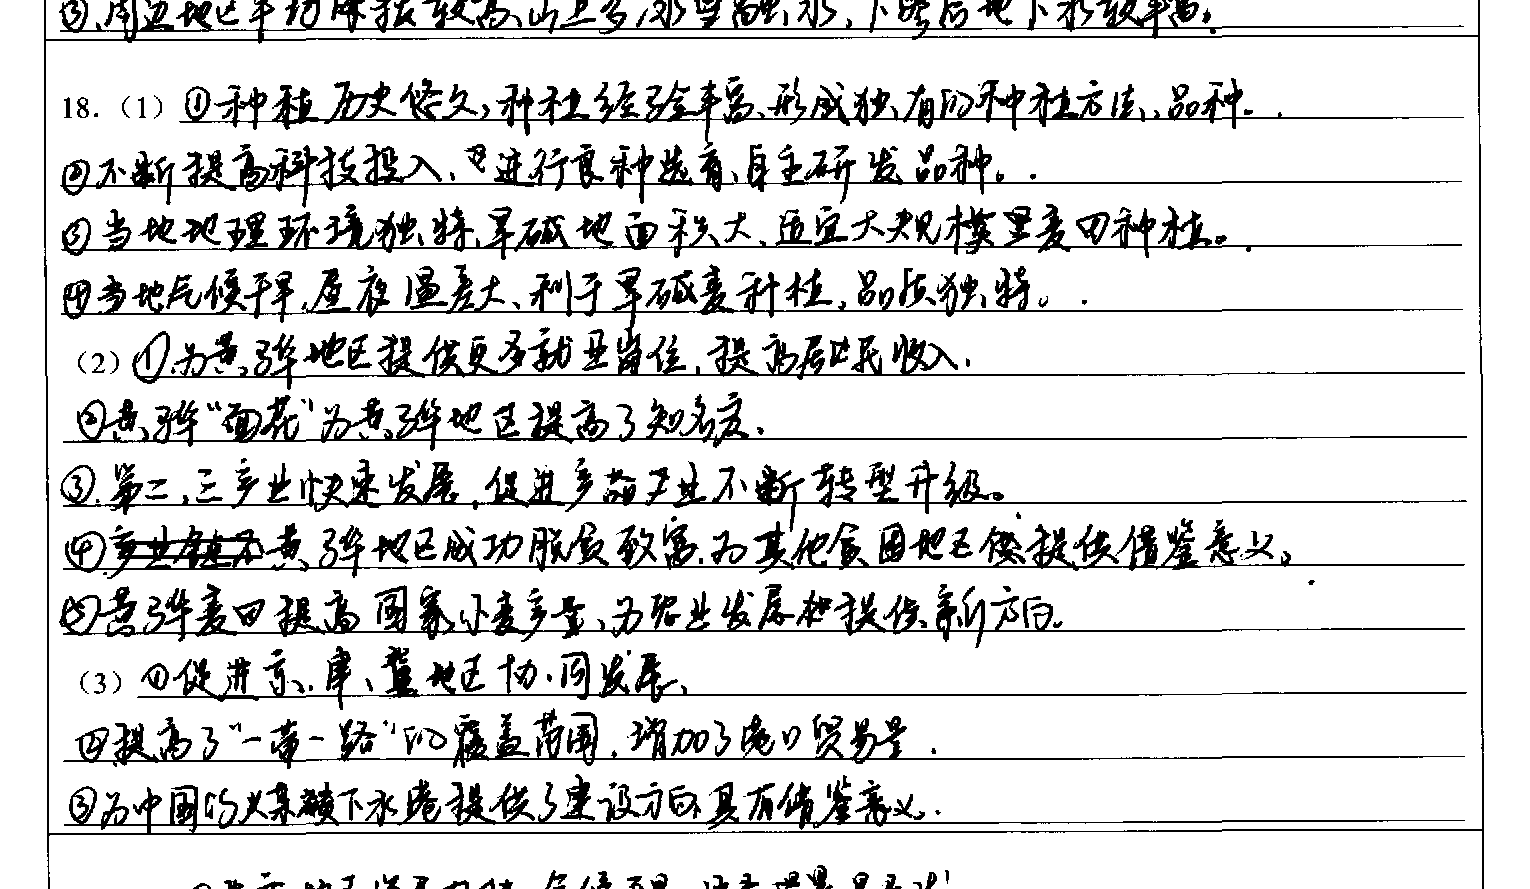 ③.周边地区平均海拔较高,山上多冰雪融水,下渗后地下水较丰富。
18.（1）①种植历史悠久,种植经验丰富、形成独有的种植方法、品种。
②不断提高科技投入、进行良种选育、自主研发品种。
③当地地理环境独特,旱碱地面积大、适宜大规模旱麦田种植。
④当地气候干旱,昼夜温差大、利于旱碱麦种植,品质独特。
（2）①为黄骅地区提供更多就业岗位,提高居民收入.
②黄骅“面花”为黄骅地区提高了知名度.
③.第二、三产业快速发展,促进产业不断转型升级。
④黄骅地区成功脱贫致富.为其他贫困地区提供借鉴意义。
⑤黄骅麦田提高国家小麦产量、为农业发展提供新方向.
（3）①促进京、津、冀地区协同发展、
②提高了“一带一路”的覆盖范围.增加了港口贸易量.
③为中国的下水港提供了建设方向,具有借鉴意义.